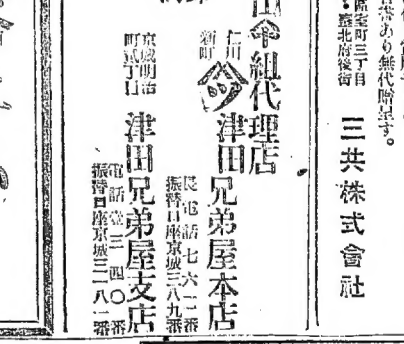 告書あり無代贈呈す。
三共株式會社
室町三丁目
臺北府後街
組代理店
仁川
新町
津田兄弟屋本店
長電話七六二番
振替口座京城三八九番
京城明治
町貳丁目
津田兄弟屋支店
電話壹三四〇番
振替口座京城三一八一番